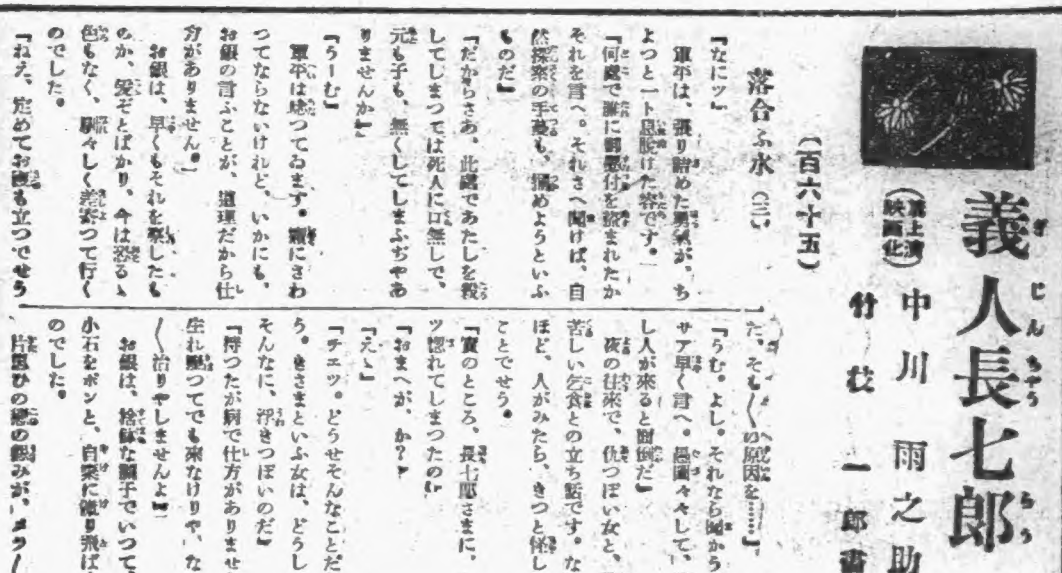 義人長七郎
ぎじんちやうらう
(上演映画化)
中川雨之助
竹枝一郎画
(百六十五)
落合ふ水(三)
『なにッ』
軍平は、張り詰めた勇気が、ち
よつと一ト息脱けた容です。
『何處で誰に御墨付を盗まれたか
それを言へ。それさへ聞けば、自
然探索の手蔓も、摑めようといふ
ものだ』
『だからさあ、此處であたしを殺
してしまつては死人に口無しで、
元も子も、無くしてしまふぢやあ
りませんか』
『うーむ』
軍平は唸つてゐます。癪にさわ
つてならないけれど、いかにも、
お銀の言ふことが、道理だから仕
方がありません。
お銀は、早くもそれを察したも
のか、愛ぞとばかり、今は恐るゝ
色もなく、馴々しく差寄つて行く
のでした。
『ねえ、定めてお腹も立つでせう
た、そも〳〵の原因を……』
『うむ。よし。それなら聞かう
サア早く言へ。愚圖々々して、
し人が來ると面倒だ』
夜の往來で、仇つぽい女と、
苦しい乞食との立ち話です。な
ほど、人がみたら、きつと怪し
ことでせう。
『實のところ、長七郎さまに、
ツ惚れてしまつたの』
『おまへが、か?』
『えゝ』
『チエツ。どうせそんなことだ
う。きさまといふ女は、どうし
そんなに、浮きつぽいのだ』
『持つたが病で仕方がありませ
生れ變つてでも來なけりや、な
〳〵治りやしませんよ』
お銀は、捨鉢な調子でいつて、
小石をポンと、自棄に蹴り飛ば
のでした。
片思ひの戀の恨みが、メラ〳〵